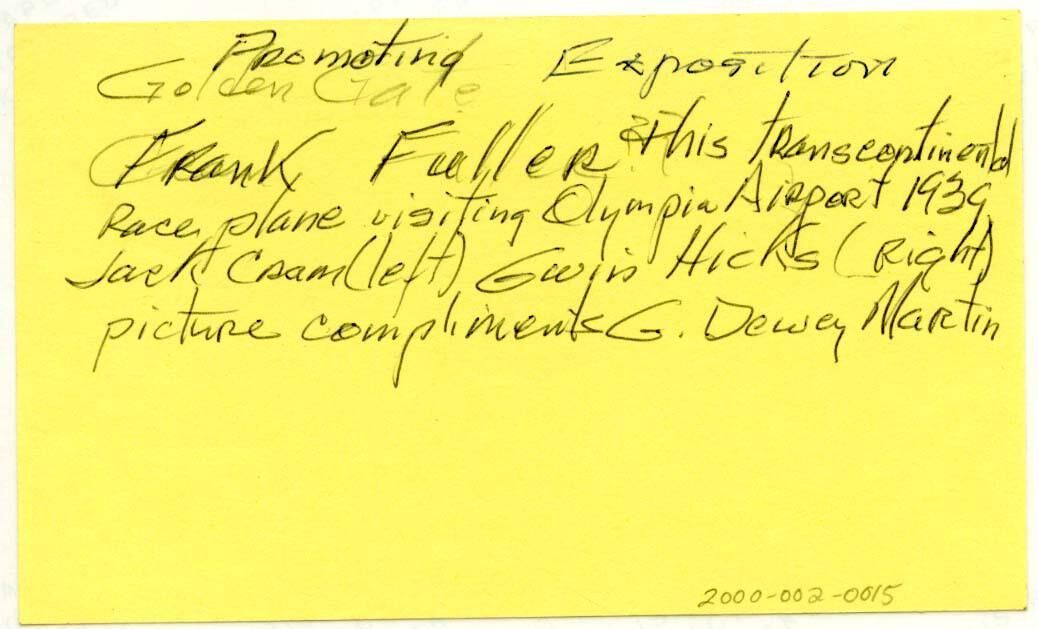 Promoting Exposition
Golden Gate
Frank Fuller & this transcontinental
Race plane visiting Olympia Airport 1939
Jack Cram (left) Gwin Hicks (Right)
picture compliments G. Dewey Martin
2000-002-0015